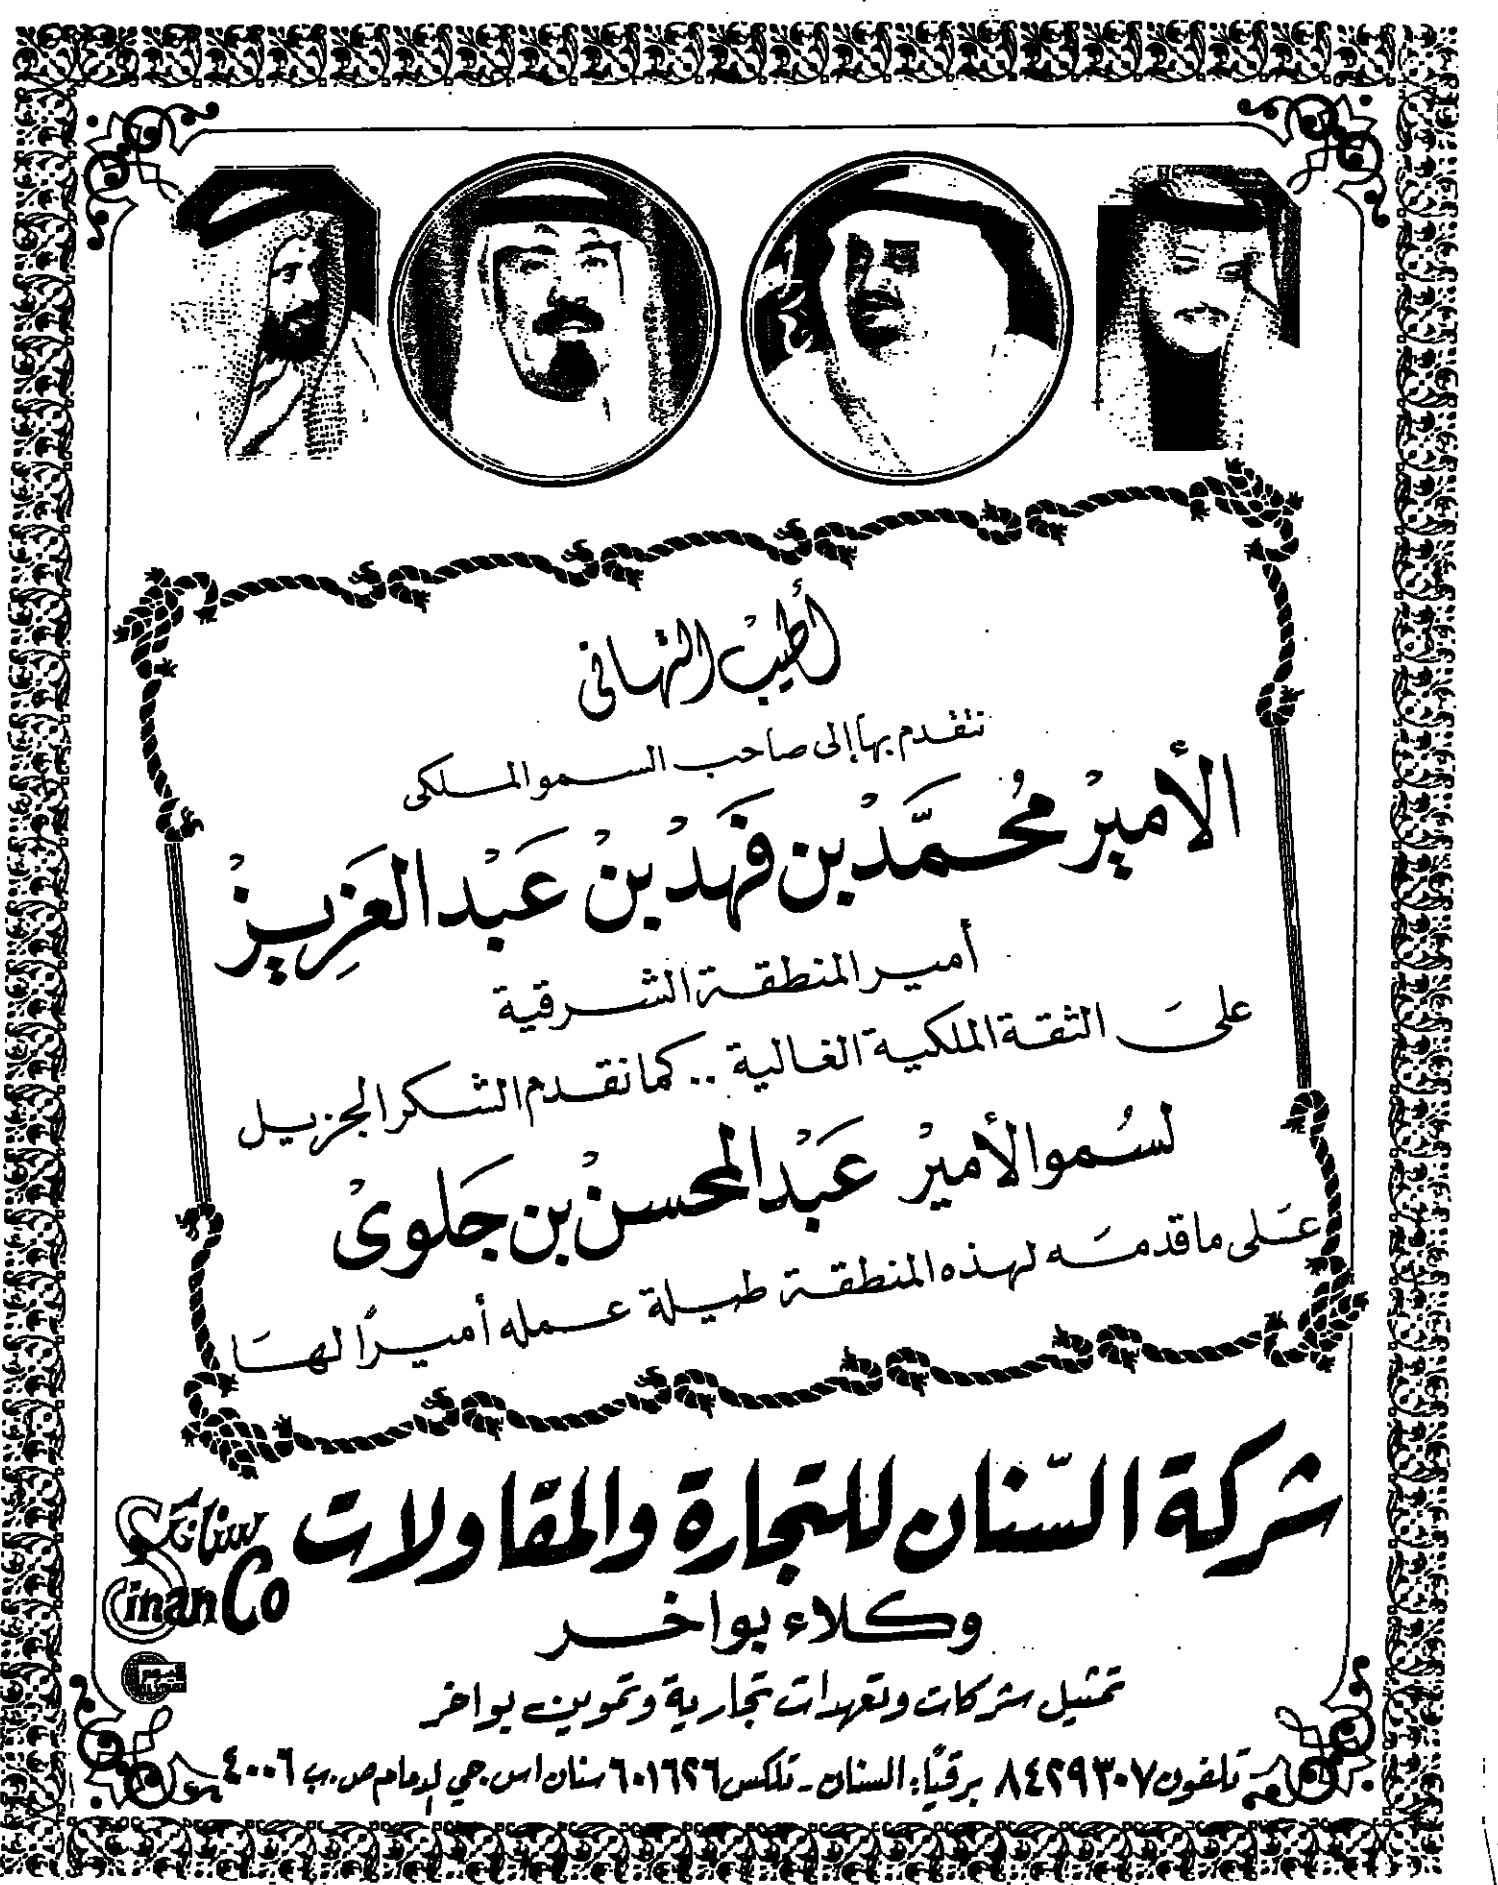 أطيب التهاني
نتقدم بها إلى صاحب السمو الملكي
الأمير محمد بن فهد بن عبد العزيز
أمير المنطقة الشرقية
على الثقة الملكية الغالية .. كما نقدم الشكر الجزيل
لسمو الأمير عبد المحسن بن جلوي
على ما قدمه لهذه المنطقة طيلة عمله أميرًا لها
شركة السنان للتجارة والمقاولات
سنانكو
Sinan Co
وكلاء بواخر
تمثيل شركات وتعهدات تجارية وتموين بواخر
تلفون ٨٤٢٩٣٠٧ برقيًا: السنان - تلكس ٦٠١٦٢٦ سنان اس. جي الدمام ص. ب ٤٠٠٦
اليوم